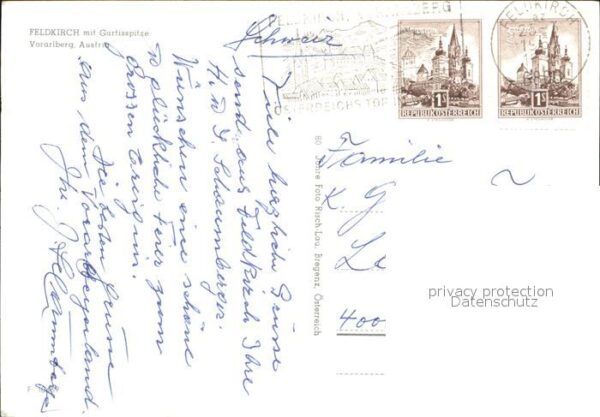 FELDKIRCH mit Gurtisspitze
Vorarlberg, Austria
FELDKIRCH, VORARLBERG
ÖSTERREICHS TOR
FELDKIRCH
1S
REPUBLIK ÖSTERREICH
1S
REPUBLIK ÖSTERREICH
Schweiz
Viele herzliche Grüsse
send. aus Feldkirch Ihre
H. u. J. Schaumberger.
Wünschen eine schöne
u. glückliche Feier zum
grossen Ereignis.
Die besten Grüsse
aus dem Vorarlbergerland.
Ihr J. Schaumberger
80 Jahre Foto Risch-Lau, Bregenz, Österreich
Familie
K. G
La
400
privacy protection
Datenschutz